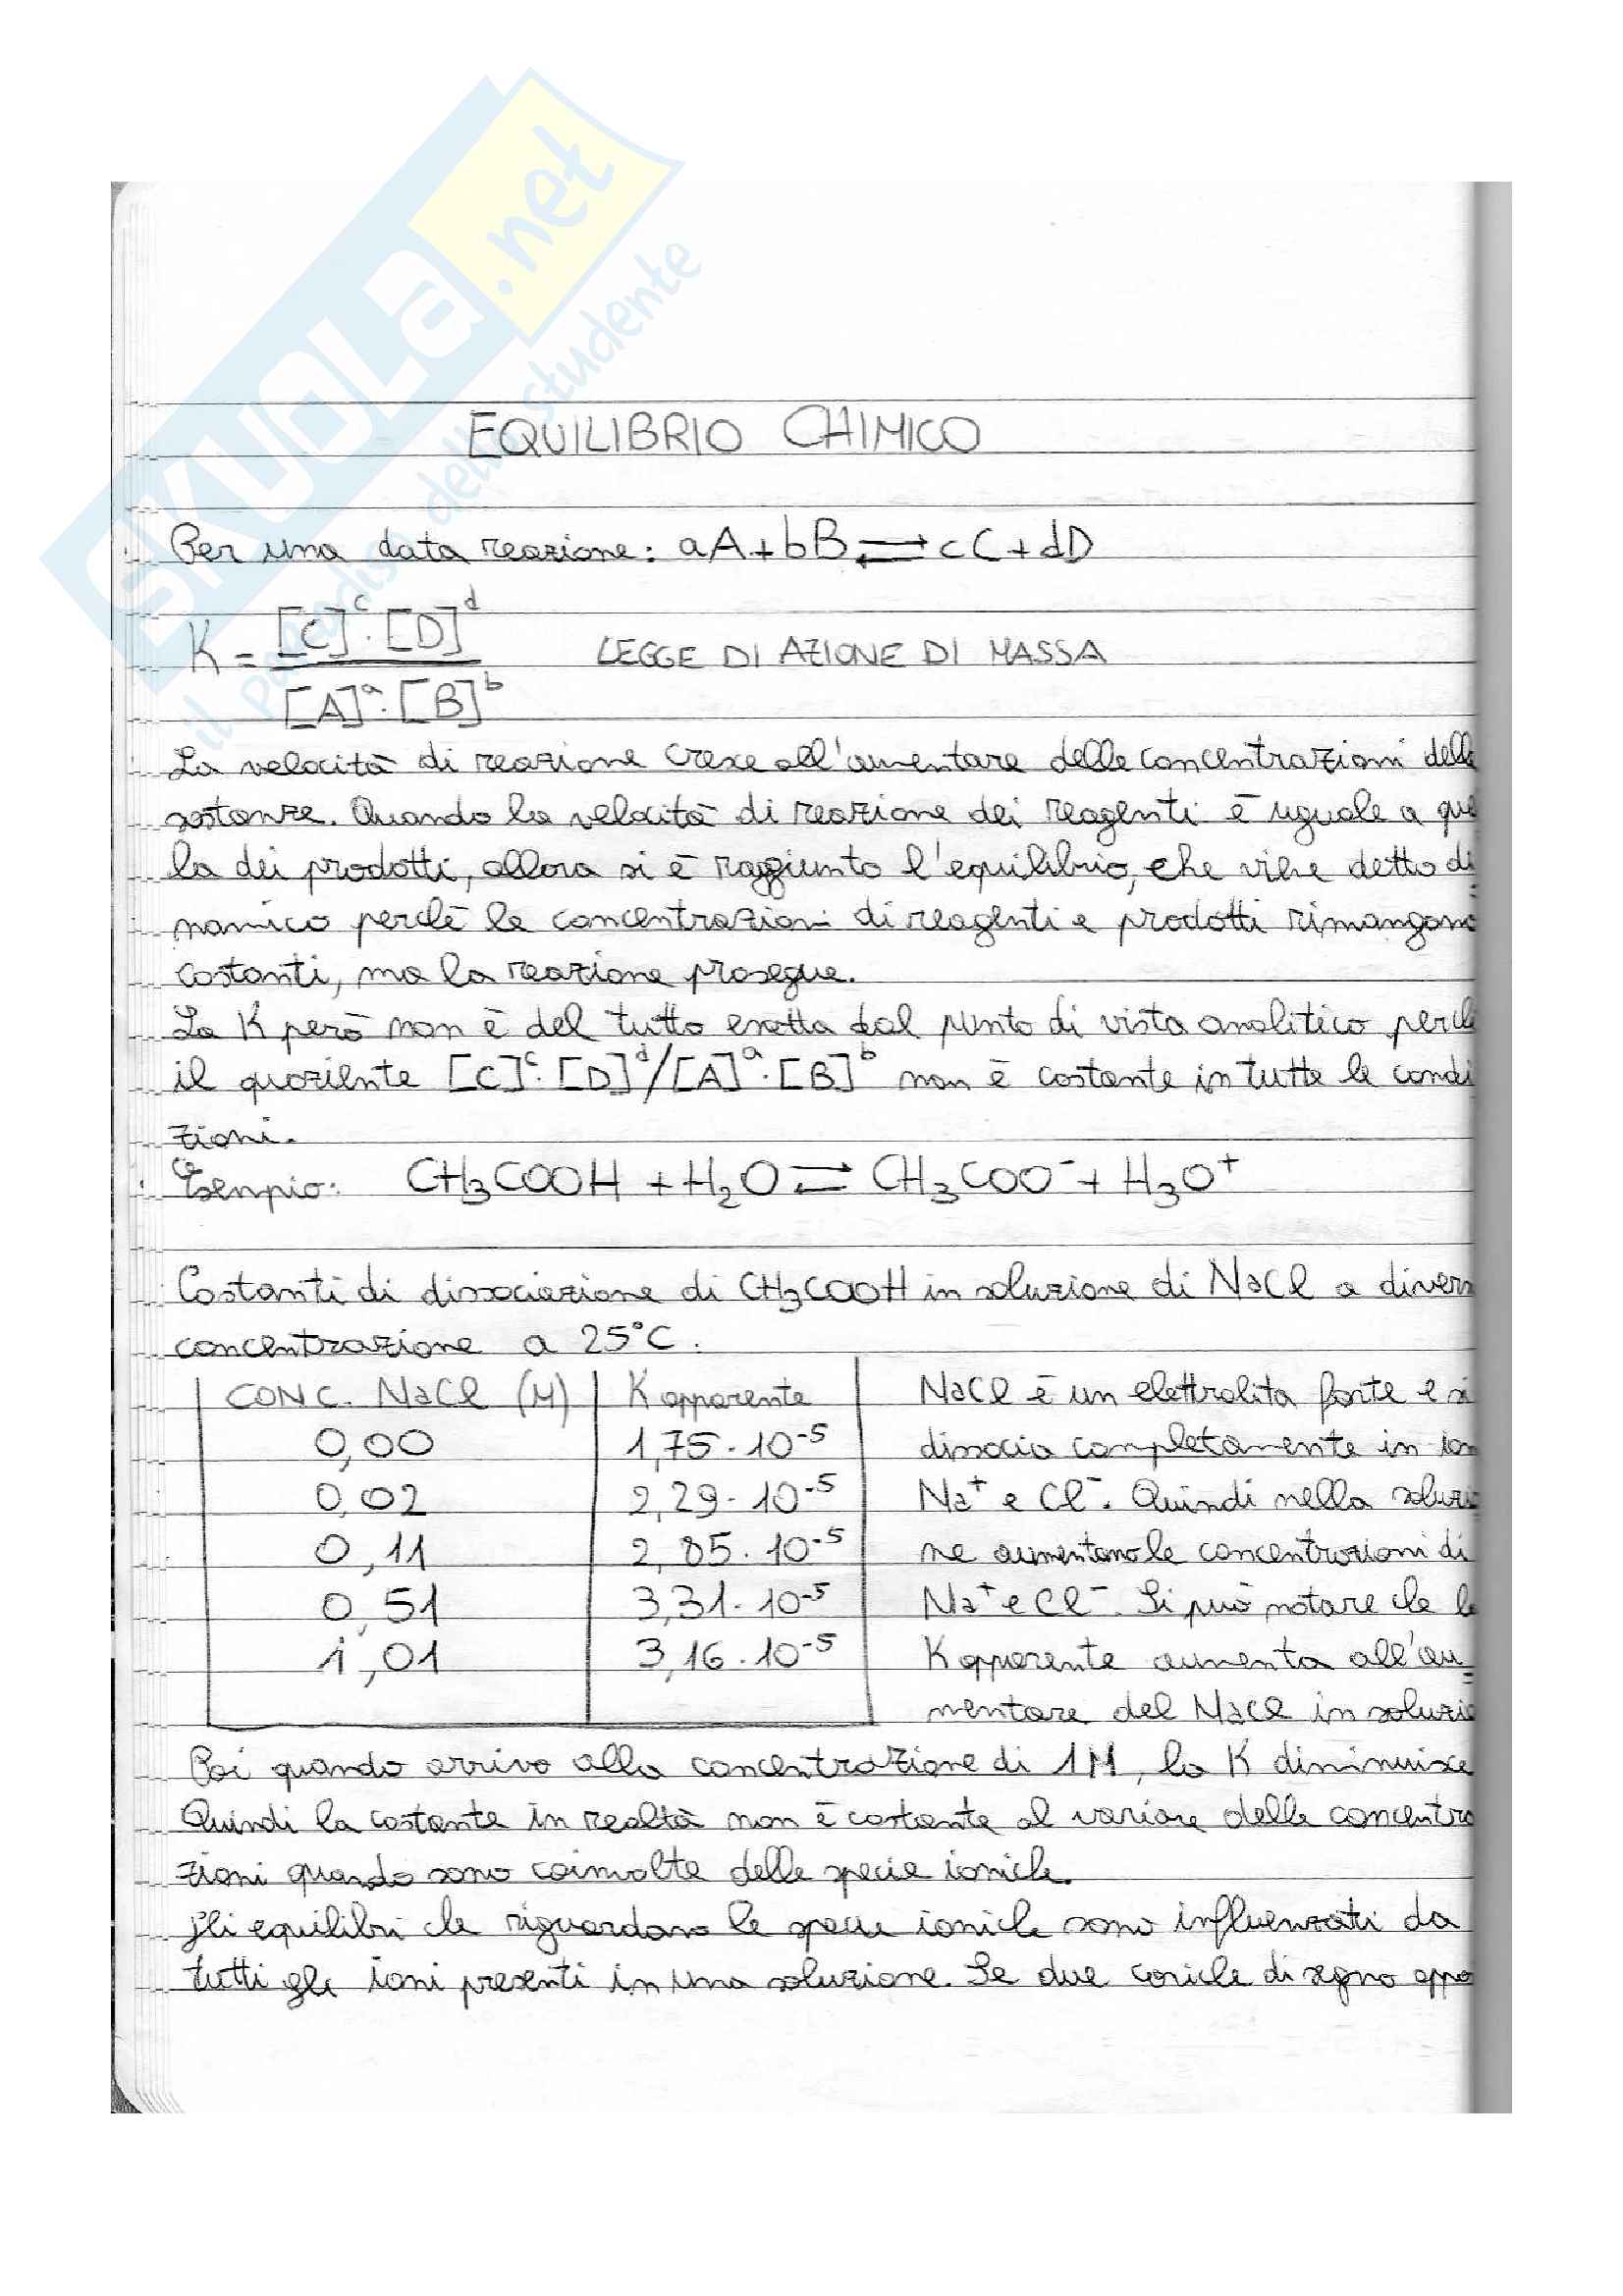 SKUOLA.net
il paradiso dello studente
EQUILIBRIO CHIMICO
Per una data reazione: aA+bB⇌cC+dD
K = [C]^c · [D]^d / [A]^a · [B]^b LEGGE DI AZIONE DI MASSA
La velocità di reazione cresce all'aumentare delle concentrazioni delle
sostanze. Quando la velocità di reazione dei reagenti è uguale a que
la dei prodotti, allora si è raggiunto l'equilibrio, che viene detto di
namico perchè le concentrazioni di reagenti e prodotti rimangono
costanti, ma la reazione prosegue.
La K però non è del tutto esatta dal punto di vista analitico perchè
il quoziente [C]^c·[D]^d/[A]^a·[B]^b non è costante in tutte le condi
zioni.
Esempio: CH₃COOH + H₂O ⇌ CH₃COO⁻ + H₃O⁺
Costanti di dissociazione di CH₃COOH in soluzione di NaCl a divers
concentrazione a 25°C.
CONC. NaCl (M) K apparente NaCl è un elettrolita forte e si
0,00 1,75·10⁻⁵ dissocia completamente in ion
0,02 2,29·10⁻⁵ Na⁺ e Cl⁻. Quindi nella soluzio
0,11 2,85·10⁻⁵ ne aumentano le concentrazioni di
0,51 3,31·10⁻⁵ Na⁺ e Cl⁻. Si può notare che la
1,01 3,16·10⁻⁵ K apparente aumenta all'au=
mentare del NaCl in soluzio
Poi quando arrivo alla concentrazione di 1M, la K diminuisce
Quindi la costante in realtà non è costante al variare delle concentra
zioni quando sono coinvolte delle specie ioniche.
Gli equilibri che riguardano le specie ioniche sono influenzati da
tutti gli ioni presenti in una soluzione. Se due cariche di segno oppo